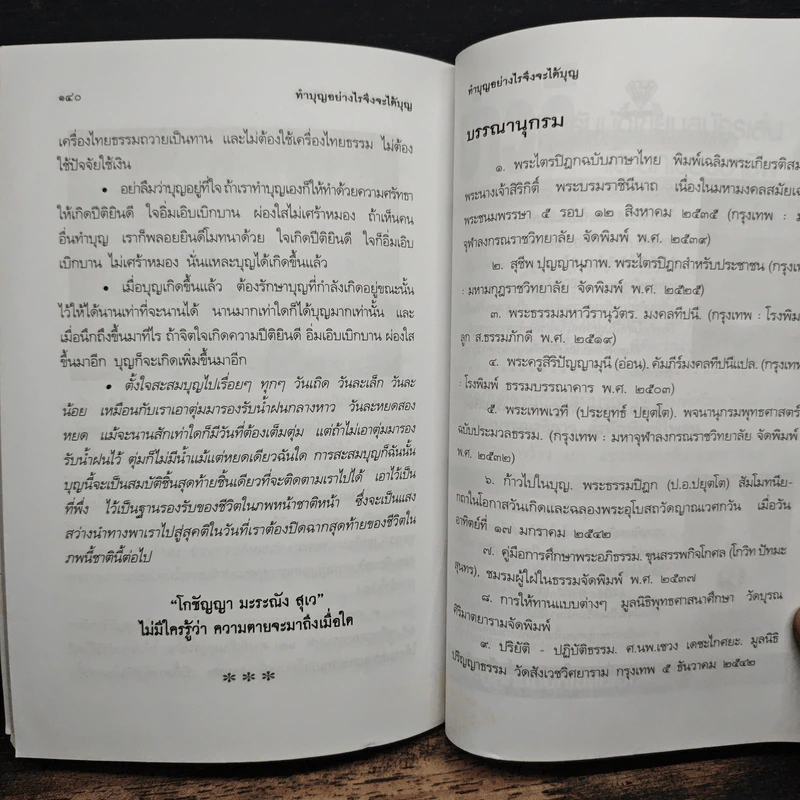 ๑๔๐ ทำบุญอย่างไรจึงจะได้บุญ
เครื่องไทยธรรมถวายเป็นทาน และไม่ต้องใช้เครื่องไทยธรรม ไม่ต้อง
ใช้ปัจจัยใช้เงิน
• อย่าลืมว่าบุญอยู่ที่ใจ ถ้าเราทำบุญเองก็ให้ทำด้วยความศรัทธา
ให้เกิดปีติยินดี ใจอิ่มเอิบเบิกบาน ผ่องใสไม่เศร้าหมอง ถ้าเห็นคน
อื่นทำบุญ เราก็พลอยยินดีโมทนาด้วย ใจเกิดปีติยินดี ใจก็อิ่มเอิบ
เบิกบาน ไม่เศร้าหมอง นั่นแหละบุญได้เกิดขึ้นแล้ว
• เมื่อบุญเกิดขึ้นแล้ว ต้องรักษาบุญที่กำลังเกิดอยู่ขณะนั้น
ไว้ให้ได้นานเท่าที่จะนานได้ นานมากเท่าใดก็ได้บุญมากเท่านั้น และ
เมื่อนึกถึงขึ้นมาทีไร ถ้าจิตใจเกิดความปีติยินดี อิ่มเอิบเบิกบาน ผ่องใส
ขึ้นมาอีก บุญก็จะเกิดเพิ่มขึ้นมาอีก
• ตั้งใจสะสมบุญไปเรื่อยๆ ทุกๆ วันเถิด วันละเล็ก วันละ
น้อย เหมือนกับเราเอาตุ่มมารองรับน้ำฝนกลางหาว วันละหยดสอง
หยด แม้จะนานสักเท่าใดก็มีวันที่ต้องเต็มตุ่ม แต่ถ้าไม่เอาตุ่มมารอง
รับน้ำฝนไว้ ตุ่มก็ไม่มีน้ำแม้แต่หยดเดียวฉันใด การสะสมบุญก็ฉันนั้น
บุญนี้จะเป็นสมบัติชิ้นสุดท้ายชิ้นเดียวที่จะติดตามเราไปได้ เอาไว้เป็น
ที่พึ่ง ไว้เป็นฐานรองรับของชีวิตในภพหน้าชาติหน้า ซึ่งจะเป็นแสง
สว่างนำทางพาเราไปสู่สุคติในวันที่เราต้องปิดฉากสุดท้ายของชีวิตใน
ภพนี้ชาตินี้ต่อไป
“โกชัญญา มะระณัง สุเว”
ไม่มีใครรู้ว่า ความตายจะมาถึงเมื่อใด
***
ทำบุญอย่างไรจึงจะได้บุญ
บรรณานุกรม
๑. พระไตรปิฎกฉบับภาษาไทย พิมพ์เฉลิมพระเกียรติสม
พระนางเจ้าสิริกิติ์ พระบรมราชินีนาถ เนื่องในมหามงคลสมัยเฉ
พระชนมพรรษา ๕ รอบ ๑๒ สิงหาคม ๒๕๓๕ (กรุงเทพ : ม
จุฬาลงกรณราชวิทยาลัย จัดพิมพ์ พ.ศ. ๒๕๓๙)
๒. สุชีพ ปุญญานุภาพ. พระไตรปิฎกสำหรับประชาชน (กรุงเทพ
: มหามกุฎราชวิทยาลัย จัดพิมพ์ พ.ศ. ๒๕๒๕)
๓. พระธรรมมหาวีรานุวัตร. มงคลทีปนี. (กรุงเทพ : โรงพิมพ์
ลูก ส.ธรรมภักดี พ.ศ. ๒๕๑๙)
๔. พระครูสิริปัญญามุนี (อ่อน). คัมภีร์มงคลทีปนีแปล. (กรุงเทพ
: โรงพิมพ์ ธรรมบรรณาคาร พ.ศ. ๒๕๐๓)
๕. พระเทพเวที (ประยุทธ์ ปยุตฺโต). พจนานุกรมพุทธศาสตร์
ฉบับประมวลธรรม. (กรุงเทพ : มหาจุฬาลงกรณราชวิทยาลัย จัดพิมพ์
พ.ศ. ๒๕๓๒)
๖. ก้าวไปในบุญ. พระธรรมปิฎก (ป.อ.ปยุตฺโต) สัมโมทนีย-
กถาในโอกาสวันเกิดและฉลองพระอุโบสถวัดญาณเวศกวัน เมื่อวัน
อาทิตย์ที่ ๑๗ มกราคม ๒๕๔๒
๗. คู่มือการศึกษาพระอภิธรรม. ขุนสรรพกิจโกศล (โกวิท ปัทมะ
สุนทร), ชมรมผู้ใฝ่ในธรรมจัดพิมพ์ พ.ศ. ๒๕๓๗
๘. การให้ทานแบบต่างๆ มูลนิธิพุทธศาสนศึกษา วัดบุรณ
ศิริมาตยารามจัดพิมพ์
๙. ปริยัติ - ปฏิบัติธรรม. ศ.นพ.เชวง เดชะไกศยะ. มูลนิธิ
ปริญญาธรรม วัดสังเวชวิศยาราม กรุงเทพ ๕ ธันวาคม ๒๕๔๒